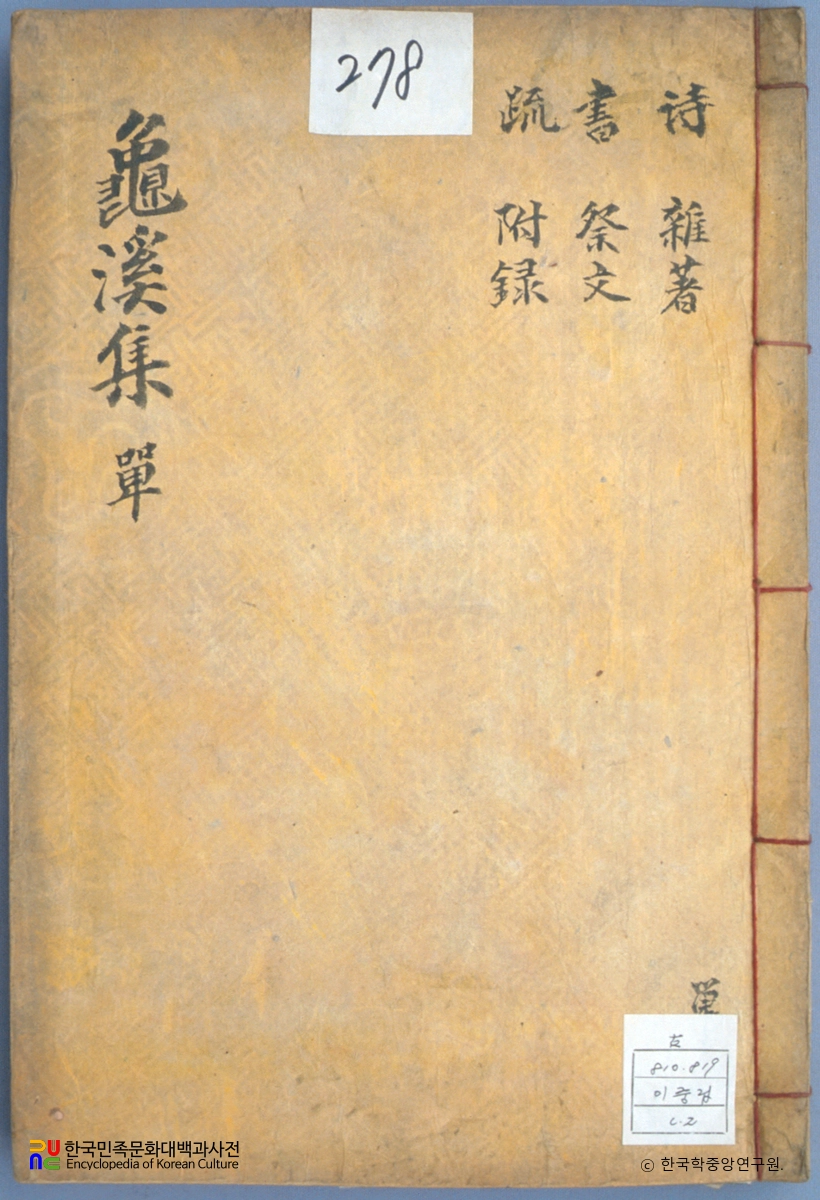 278
詩 雜著
書 祭文
疏 附録
龜溪集 單
單
古
810.819
이중립
c.2
한국민족문화대백과사전
Encyclopedia of Korean Culture
© 한국학중앙연구원.